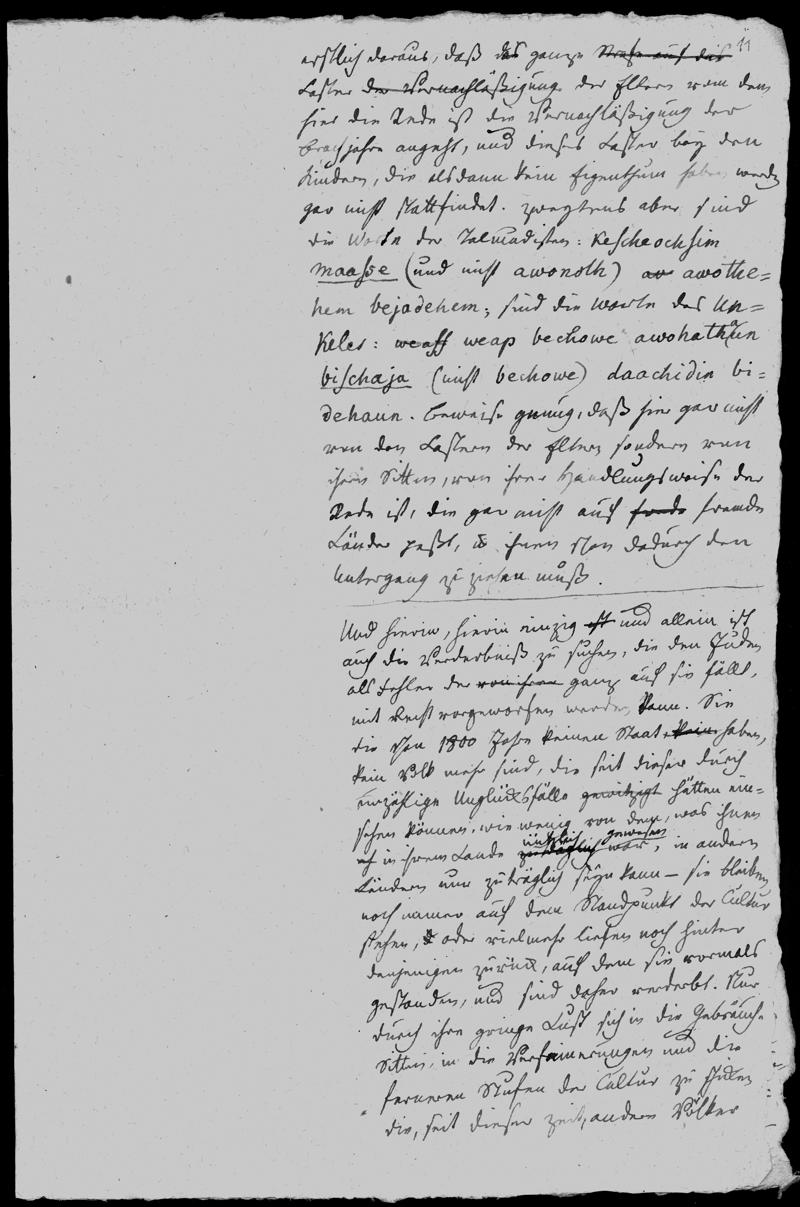 11
erstlich daraus, daß das ganze Strafe auf das
Laster der Vernachläßigung der Eltern von dem
hier die Rede ist die Vernachläßigung der
Brachjahre angeht, und dieses Laster bey den
Kindern, die alsdann kein Eigenthum haben werden
gar nicht stattfindet. Zweytens aber sind
die Worte der Talmudisten: Kescheochsim
maasse (und nicht awonoth) awothe=
hem bejadehem; sind die Worte des Un=
keles: weaff weap bechowe awohathaun
bischaja (nicht bechowe) daachidin bi=
dehaun. Beweise genug, daß hier gar nicht
von den Lastern der Eltern sondern von
ihren Sitten, von ihrer Handlungsweise die
Rede ist, die gar nicht auf fremde
Länder paßt, u ihnen schon dadurch den
Untergang zu ziehen muß.
Und hierin, hierin einzig ist und allein ist
auch die Verderbniß zu suchen, die den Juden
als Fehler der von ihnen ganz auf sie fällt,
mit Recht vorgeworfen werden kann. Sie
die schon 1800 Jahre keinen Staat kein haben,
kein Volk mehr sind, die seit dieser durch
unzählige Unglücksfälle gewitzigt hätten ein=
sehen können, wie wenig von dem, was ihnen
in ihrem Lande zuträglich nützlich gewesen war, in andern
Ländern nur zuträglich seyn kann – sie bleiben
noch immer auf dem Standpunkt der Cultur
stehen, oder vielmehr liefen noch hinter
denjenigen zurück, auf dem sie vormals
gestanden, und sind daher verderbt. Nur
durch ihre geringe Lust sich in die Gebräuche
Sitten, in die Verfeinerungen und die
ferneren Stufen der Cultur zu
die, seit dieser Zeit, andere Völker